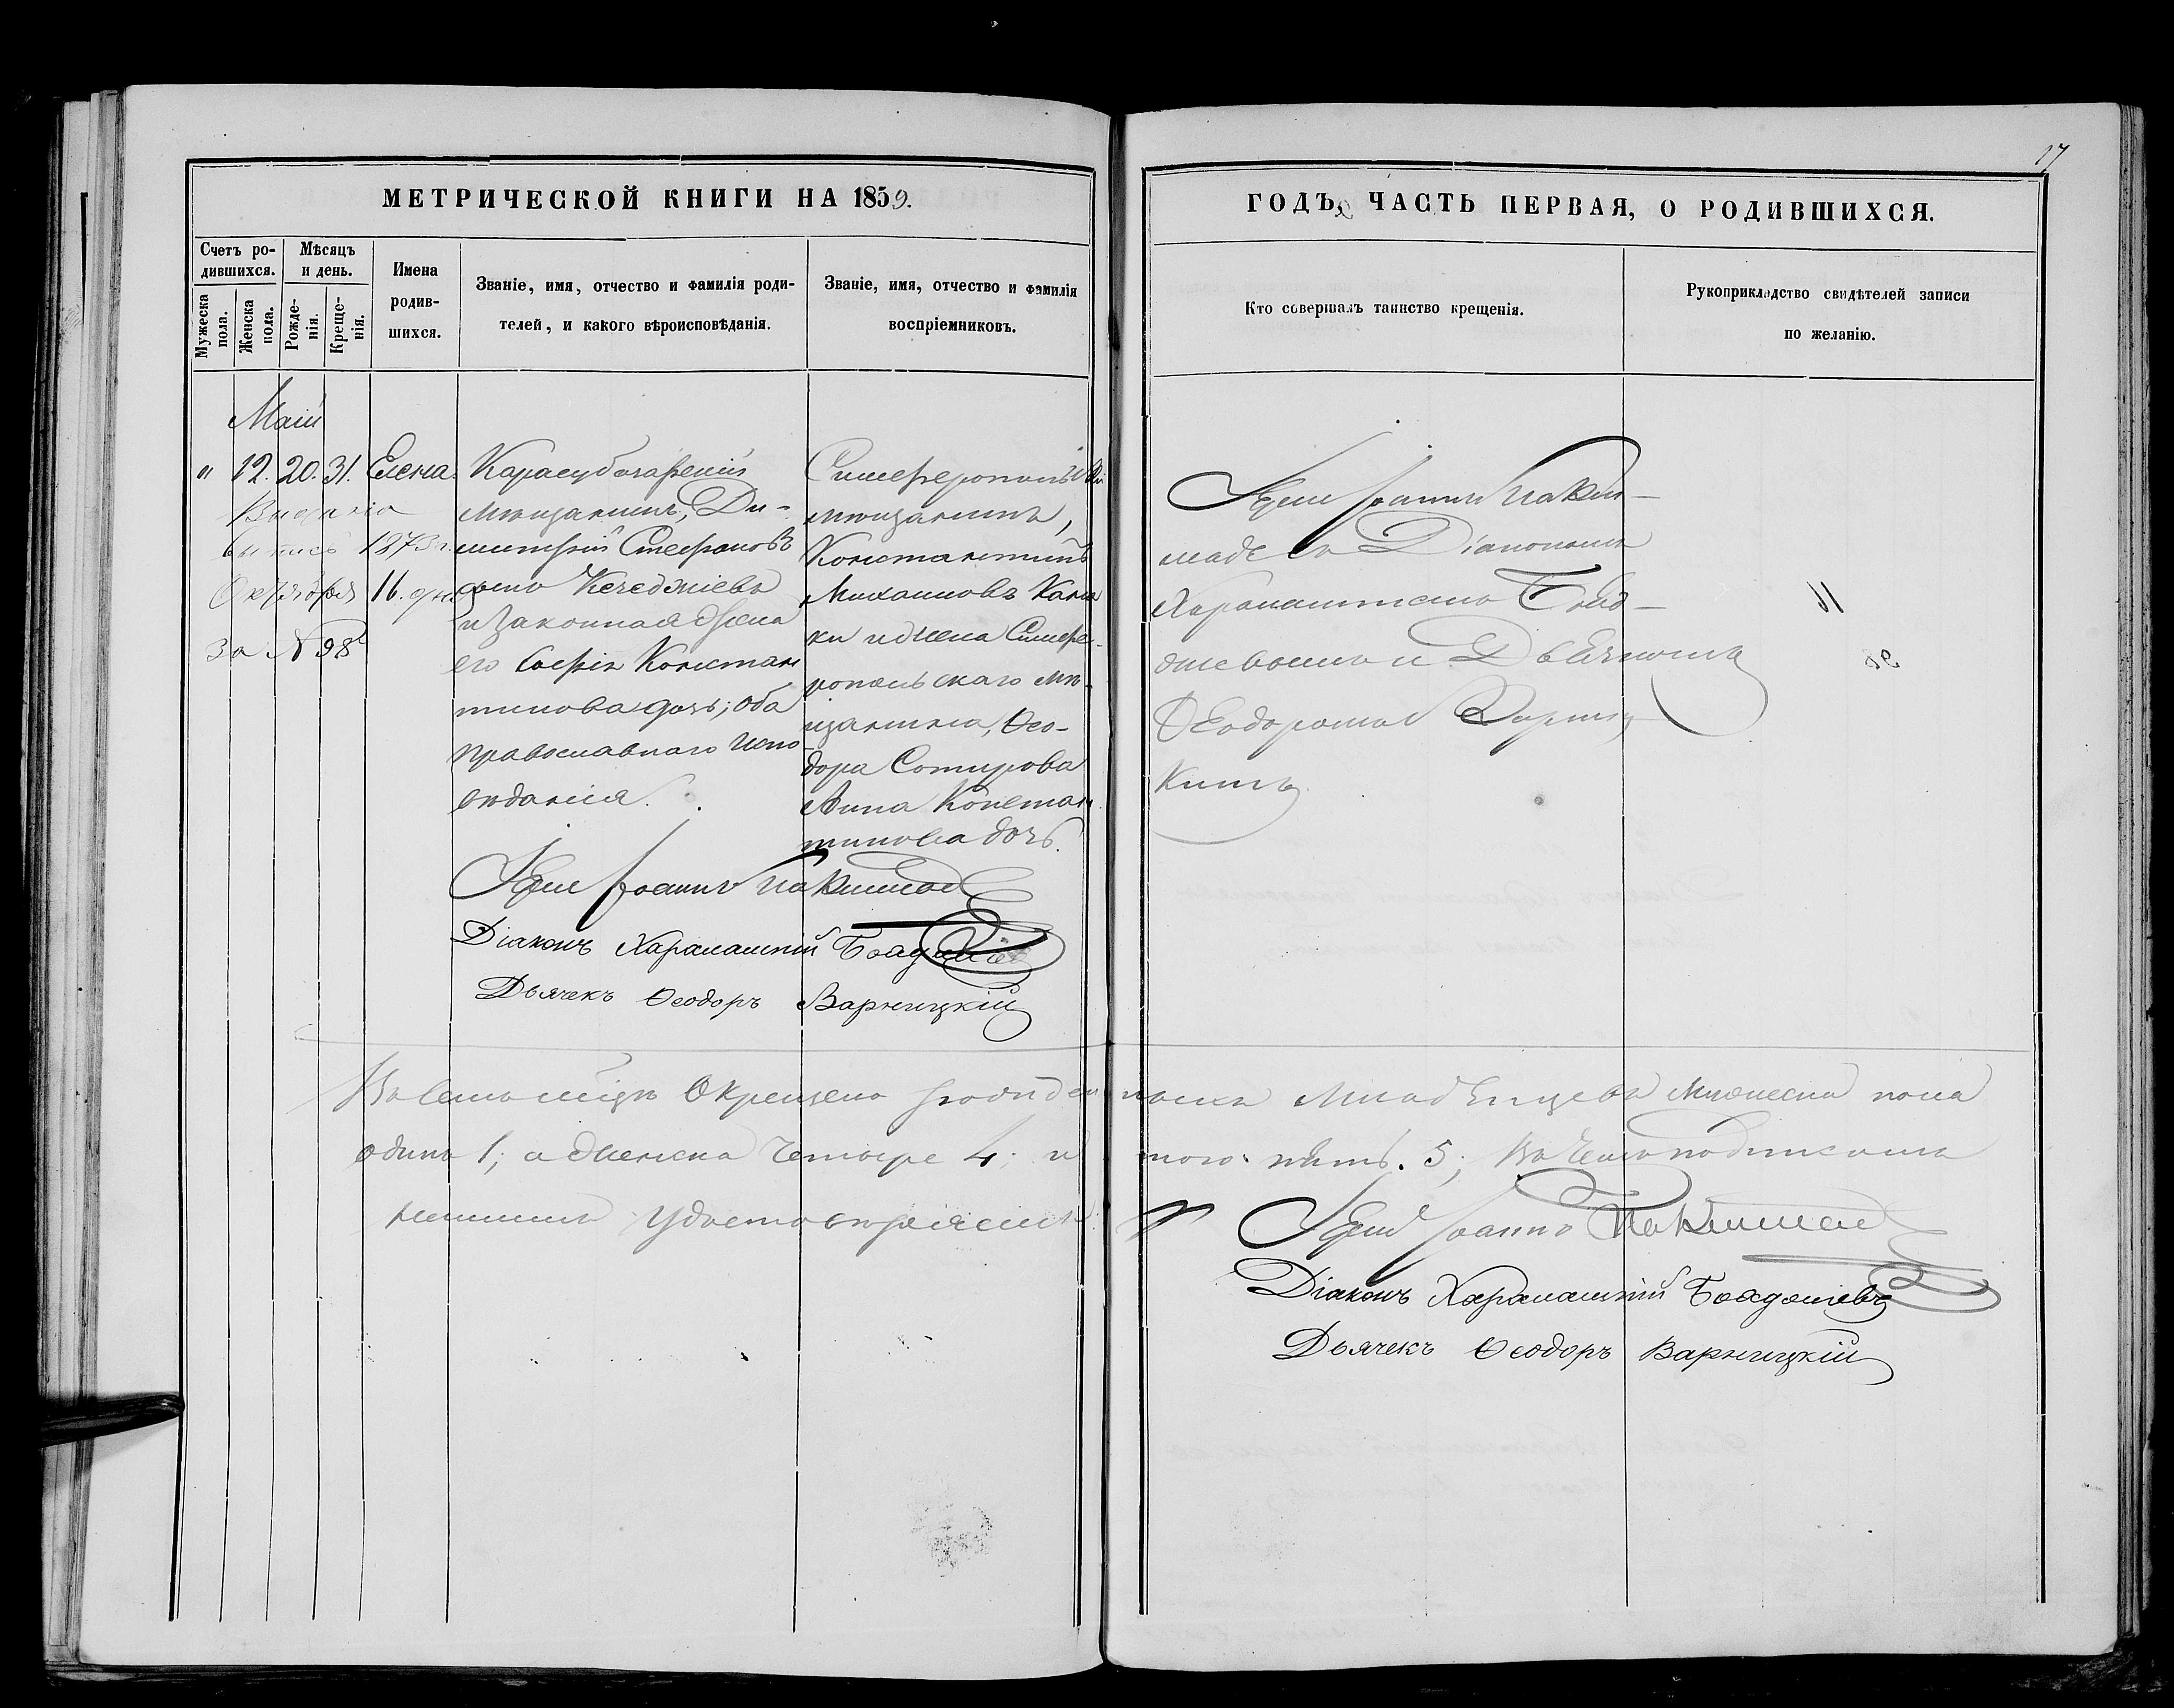 17
МЕТРИЧЕСКОЙ КНИГИ НА 1859.
ГОДЪ, ЧАСТЬ ПЕРВАЯ, О РОДИВШИХСЯ.
Счетъ ро-
дившихся.
Мужеска
пола.
Женска
пола.
Мѣсяцъ
и день.
Рожде-
нія.
Креще-
нія.
Имена
родив-
шихся.
Званіе, имя, отчество и фамилія роди-
телей, и какого вѣроисповѣданія.
Званіе, имя, отчество и фамилія
воспріемниковъ.
Кто совершалъ таинство крещенія.
Рукоприкладство свидѣтелей записи
по желанію.
Маій
" 12. 20. 31. Елена.
Выдана
выпись 1873 г.
Октября 16. дня
за № 98
Карасубазарскій
мѣщанинъ, Ди-
митрій Стефановъ
сынъ Кечеджіевъ
и законная жена
его Софія Констан
тинова дочь; оба
православнаго испо
вѣданія.
мѣщанинъ,
Константинъ
Михаиловъ
ки и жена Симфе-
ропольскаго мѣ-
щанина, Ѳео-
дора Сотирова
Анна Констан
тинова дочь.
Іерей Іоаннъ
мадъ съ Діакономъ
Харалампіемъ Бояд-
жіевымъ и Дьячкомъ
Ѳеодоромъ Варниц
кимъ
Іерей Іоаннъ
Діаконъ Харалампій Бояджіевъ
Дьячекъ Ѳеодоръ Варницкій
Въ семъ мѣсяцѣ окрещено рожденныхъ младенцевъ мужеска пола
одинъ 1; а женска четыре 4; итого: пять. 5; въ чемъ подписомъ
нашимъ удостовѣряемъ
Іерей Іоаннъ
Діаконъ Харалампій Бояджіевъ
Дьячекъ Ѳеодоръ Варницкій